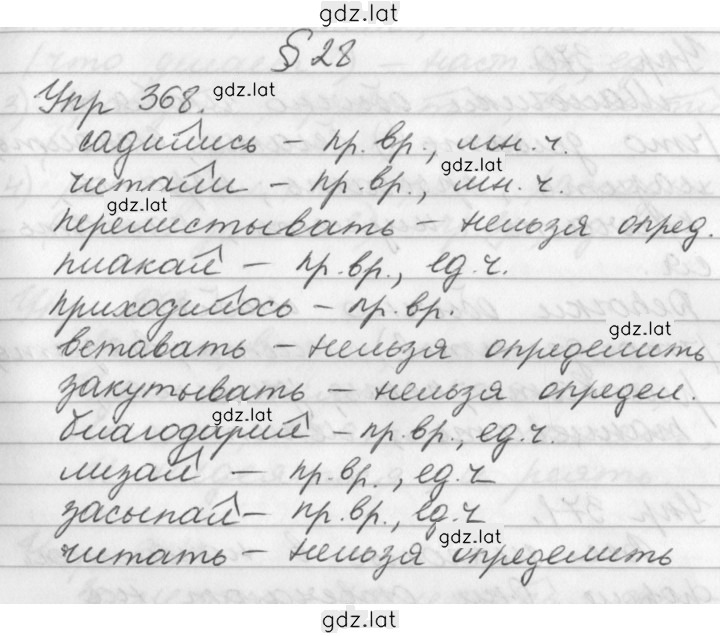 gdz.lat
§ 28
Упр 368.
gdz.lat
садились – пр.вр., мн.ч.
gdz.lat
читали – пр.вр., мн.ч.
gdz.lat
перелистывать – нельзя опред.
плакал – пр.вр., ед.ч.
приходилось – пр.вр.
gdz.lat
вставать – нельзя определить
закутывать – нельзя определ.
gdz.lat
благодарил – пр.вр., ед.ч.
лизал – пр.вр., ед.ч
засыпал – пр.вр., ед.ч
gdz.lat
читать – нельзя определить
gdz.lat